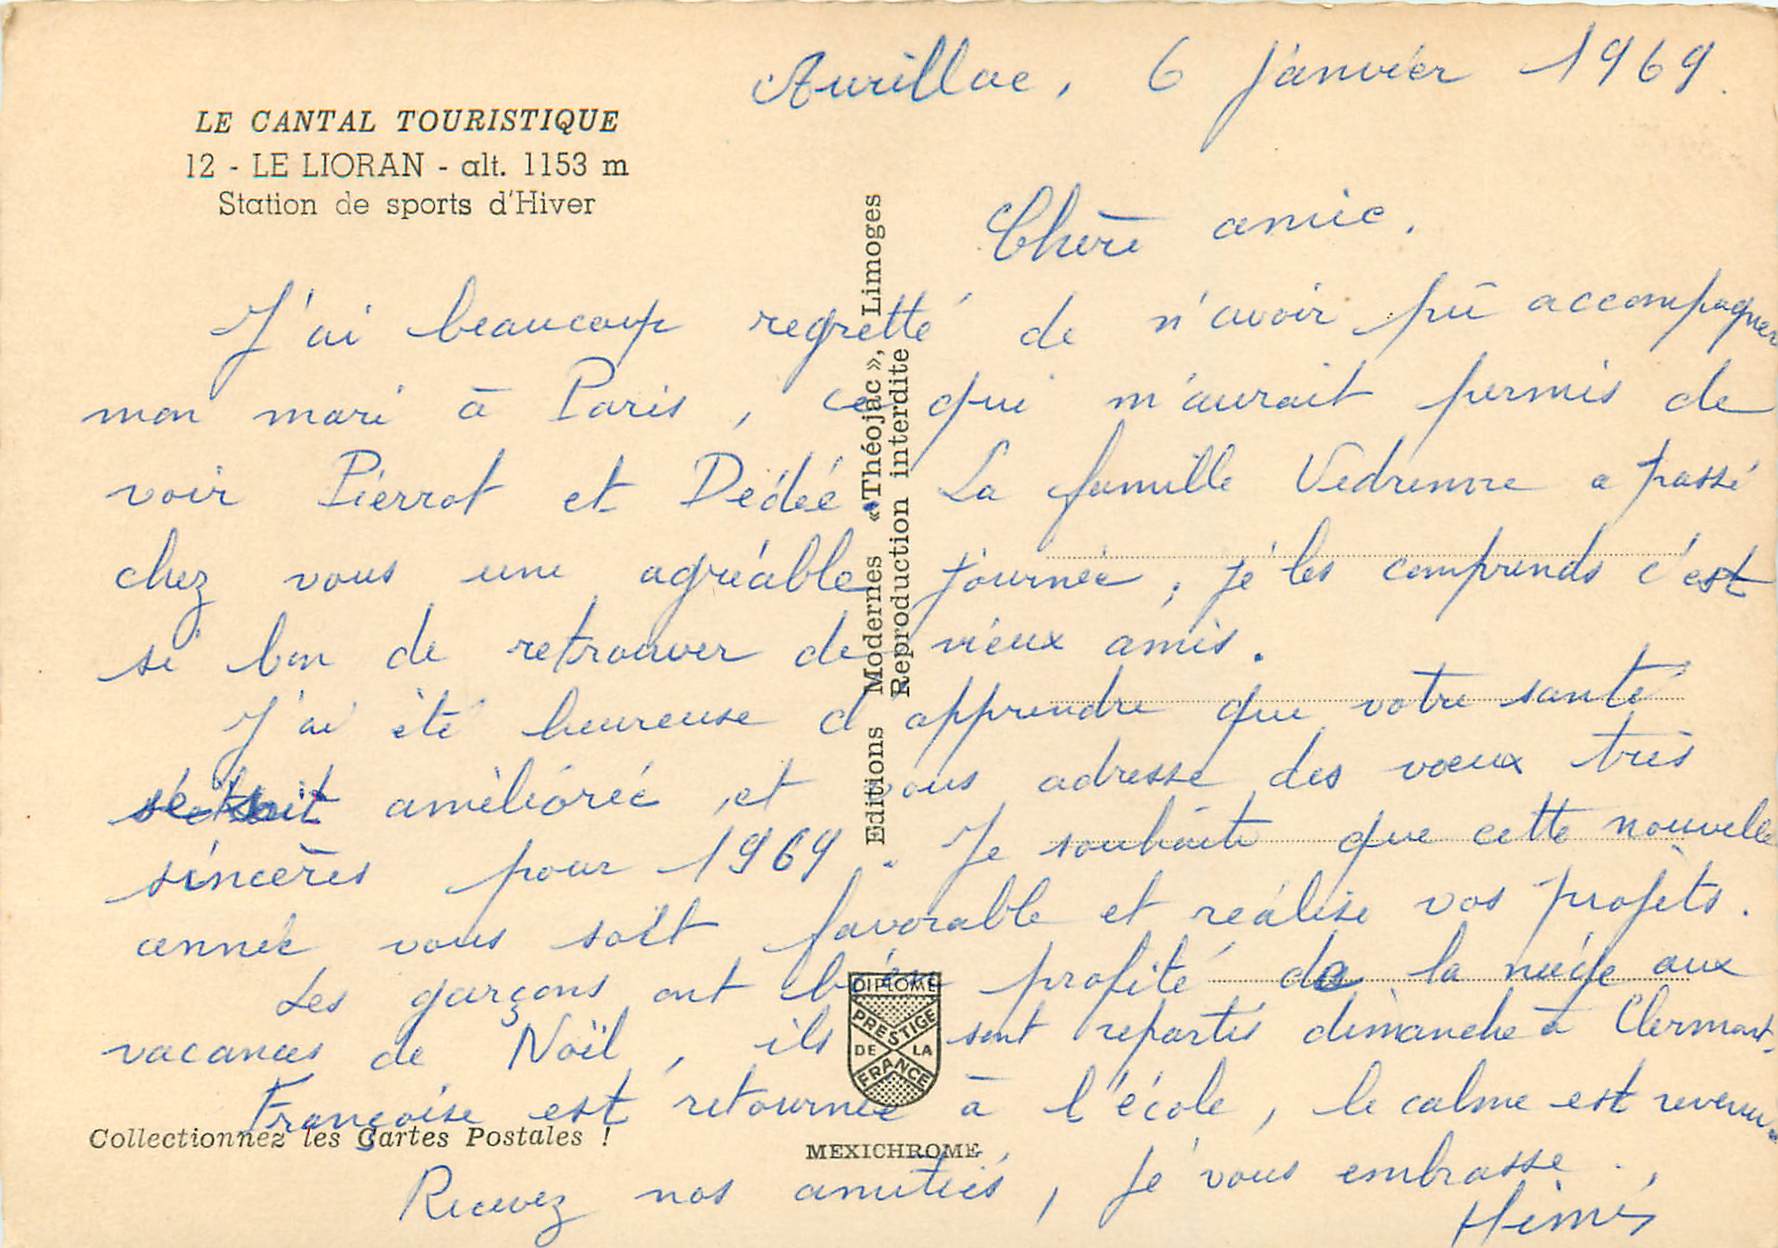 Aurillac, 6 Janvier 1969.
LE CANTAL TOURISTIQUE
12 - LE LIORAN - alt. 1153 m
Station de sports d'Hiver
Chère amie.
J'ai beaucoup regretté de n'avoir pû accompagner
mon mari à Paris, ce qui m'aurait permis de
voir Pierrot et Dédée. La famille Vedrenne a passé
chez vous une agréable journée, je les comprends c'est
si bon de retrouver de vieux amis.
J'ai été heureuse d'apprendre que votre santé
s'était améliorée, et vous adresse des vœux très
sincères pour 1969. Je souhaite que cette nouvelle
année vous soit favorable et réalise vos projets.
Les garçons ont bien profité de la neige aux
vacances de Noël, ils sont repartis dimanche à Clermont.
Françoise est retournée à l'école, le calme est revenu.
Recevez nos amitiés, je vous embrasse.
Editions Modernes « Théojac », Limoges
Reproduction interdite
DIPLOME
PRESTIGE
DE LA
FRANCE
Collectionnez les Cartes Postales !
MEXICHROME